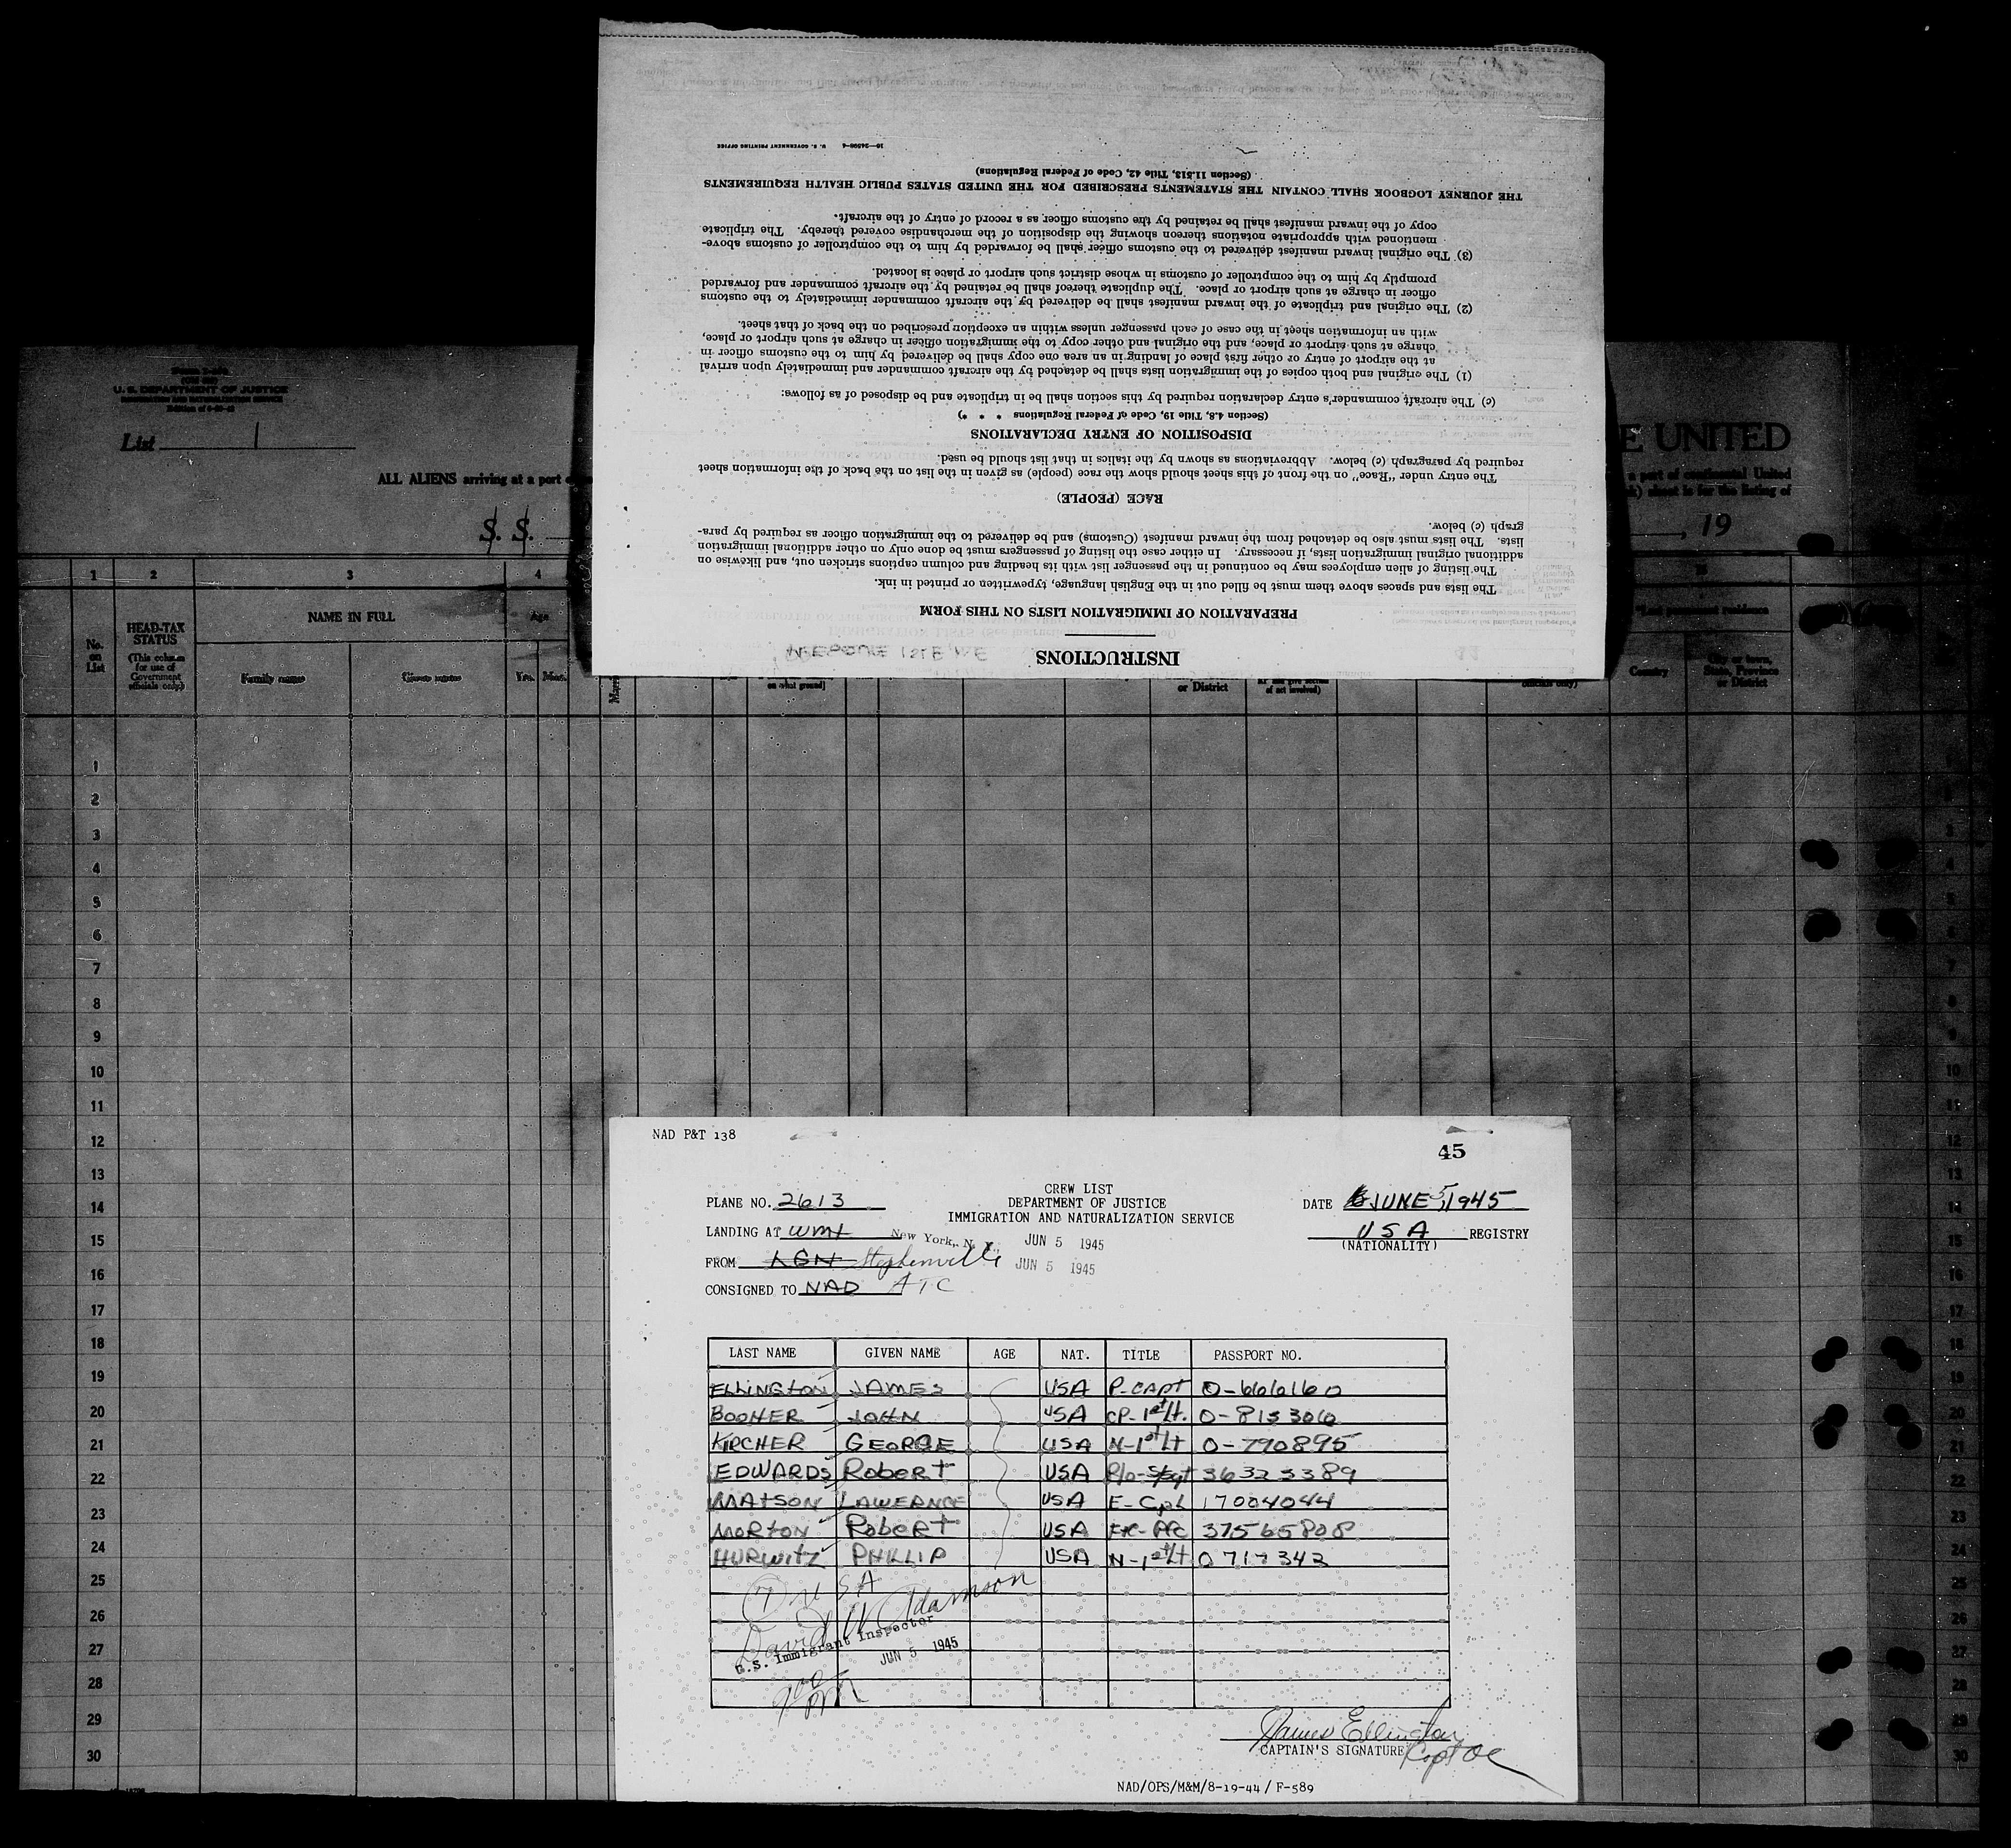 16—24598-4 U. S. GOVERNMENT PRINTING OFFICE
INSTRUCTIONS
PREPARATION OF IMMIGRATION LISTS ON THIS FORM
The lists and spaces above them must be filled out in the English language, typewritten or printed in ink.
The listing of alien employees may be continued in the passenger list with its heading and column captions stricken out, and likewise on
additional original immigration lists, if necessary. In either case the listing of passengers must be done only on other additional immigration
lists. The lists must also be detached from the inward manifest (Customs) and be delivered to the immigration officer as required by para-
graph (c) below.
RACE (PEOPLE)
The entry under "Race" on the front of this sheet should show the race (people) as given in the list on the back of the information sheet
required by paragraph (c) below. Abbreviations as shown by the italics in that list should be used.
DISPOSITION OF ENTRY DECLARATIONS
(Section 4.8, Title 19, Code of Federal Regulations * * *)
(c) The aircraft commander's entry declaration required by this section shall be in triplicate and be disposed of as follows:
(1) The original and both copies of the immigration lists shall be detached by the aircraft commander and immediately upon arrival
at the airport of entry or other first place of landing in an area one copy shall be delivered by him to the customs officer in
charge at such airport or place, and the original and other copy to the immigration officer in charge at such airport or place,
with an information sheet in the case of each passenger unless within an exception prescribed on the back of that sheet.
(2) The original and triplicate of the inward manifest shall be delivered by the aircraft commander immediately to the customs
officer in charge at such airport or place. The duplicate thereof shall be retained by the aircraft commander and forwarded
promptly by him to the comptroller of customs in whose district such airport or place is located.
(3) The original inward manifest delivered to the customs officer shall be forwarded by him to the comptroller of customs above-
mentioned with appropriate notations thereon showing the disposition of the merchandise covered thereby. The triplicate
copy of the inward manifest shall be retained by the customs officer as a record of entry of the aircraft.
THE JOURNEY LOGBOOK SHALL CONTAIN THE STATEMENTS PRESCRIBED FOR THE UNITED STATES PUBLIC HEALTH REQUIREMENTS
(Section 11.513, Title 42, Code of Federal Regulations)
U. S. DEPARTMENT OF JUSTICE
IMMIGRATION AND NATURALIZATION SERVICE
List 1
E UNITED
ALL ALIENS arriving at a port
a part of continental United
sheet is for the listing of
S. S.
, 19
1 2 3 4
No. on List
HEAD-TAX STATUS
(This column for use of Government officials only)
NAME IN FULL
Age
Family name
Given name
Yrs. Mos.
on what ground]
or District
of act involved)
*Last permanent residence
Country
City or town, State, Province or District
1
2
3
4
5
6
7
8
9
10
11
12
13
14
15
16
17
18
19
20
21
22
23
24
25
26
27
28
29
30
NAD P&T 138
45
CREW LIST
DEPARTMENT OF JUSTICE
IMMIGRATION AND NATURALIZATION SERVICE
PLANE NO. 2613
DATE JUNE 5, 1945
LANDING AT New York, N. Y. JUN 5 1945
USA REGISTRY
(NATIONALITY)
FROM Stephenville JUN 5 1945
CONSIGNED TO NAD ATC
LAST NAME GIVEN NAME AGE NAT. TITLE PASSPORT NO.
ELLINGTON JAMES USA P-CAPT O-666160
BOOHER JOHN USA CP-1st Lt. O-813306
KIRCHER GEORGE USA N-1st Lt O-790895
EDWARDS Robert USA R/o-S/Sgt 36323389
MATSON LAWERNCE USA E-Cpl 17004044
MORTON Robert USA PFC 37565808
HURWITZ PHILLIP USA N-1st Lt O 717342
(7) USA
David W Adamson
U.S. Immigrant Inspector
JUN 5 1945
PM
James Ellington
CAPTAIN'S SIGNATURE Capt AC
NAD/OPS/M&M/8-19-44 / F-589